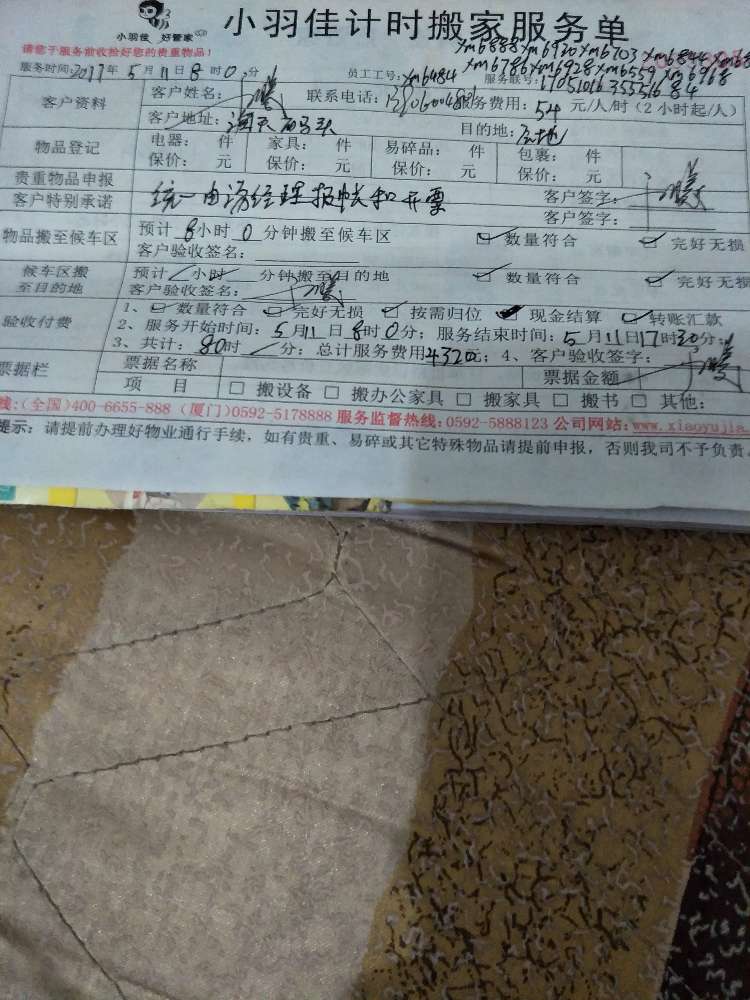 小羽佳 好管家
小羽佳计时搬家服务单
请您于服务前收捡好您的贵重物品！
xm6888 xm6920 xm6703 xm6844
xm6786 xm6928 xm6559 xm6968
服务时间：2017年 5月11日8时0分 员工工号：xm6484 服务联号：
客户资料 客户姓名： 联系电话： 服务费用：54元/人/时（2小时起/人）
客户地址： 目的地：
物品登记 电器： 件 家具： 件 易碎品： 件 包裹： 件
保价： 元 保价： 元 保价： 元 保价： 元
贵重物品申报 客户签字：
客户特别承诺 统一由汤经理报帐和开票 客户签字：
物品搬至候车区 预计8小时0分钟搬至候车区 数量符合 完好无损
客户验收签名：
候车区搬至目的地 预计 小时 分钟搬至目的地 数量符合 完好无损
客户验收签名：
验收付费 1、数量符合 完好无损 按需归位 现金结算 转账汇款
2、服务开始时间：5月11日8时0分；服务结束时间：5月11日17时30分；
3、共计：80时 分；总计服务费用4320元；4、客户验收签字：
票据栏 票据名称 票据金额
项 目 □ 搬设备 □ 搬办公家具 □ 搬家具 □ 搬书 □ 其他：
线：(全国)400-6655-888 (厦门)0592-5178888 服务监督热线：0592-5888123 公司网站：www.xiaoyujia.
提示：请提前办理好物业通行手续，如有贵重、易碎或其它特殊物品请提前申报，否则我司不予负责。